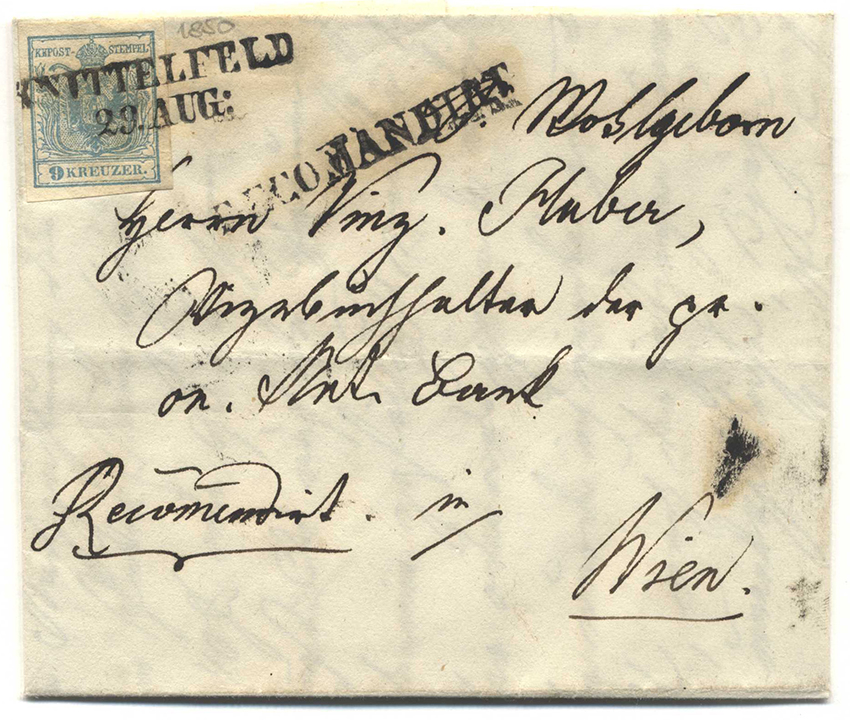 1850
KKPOST-STEMPEL
KNITTELFELD
29. AUG:
9 KREUZER.
RECOMANDIRT
Sr. Wohlgeborn
Herrn Vinz. Huber,
Vizebuchhalter der pr.
oe. Nat. Bank
Recomandirt. in
Wien.